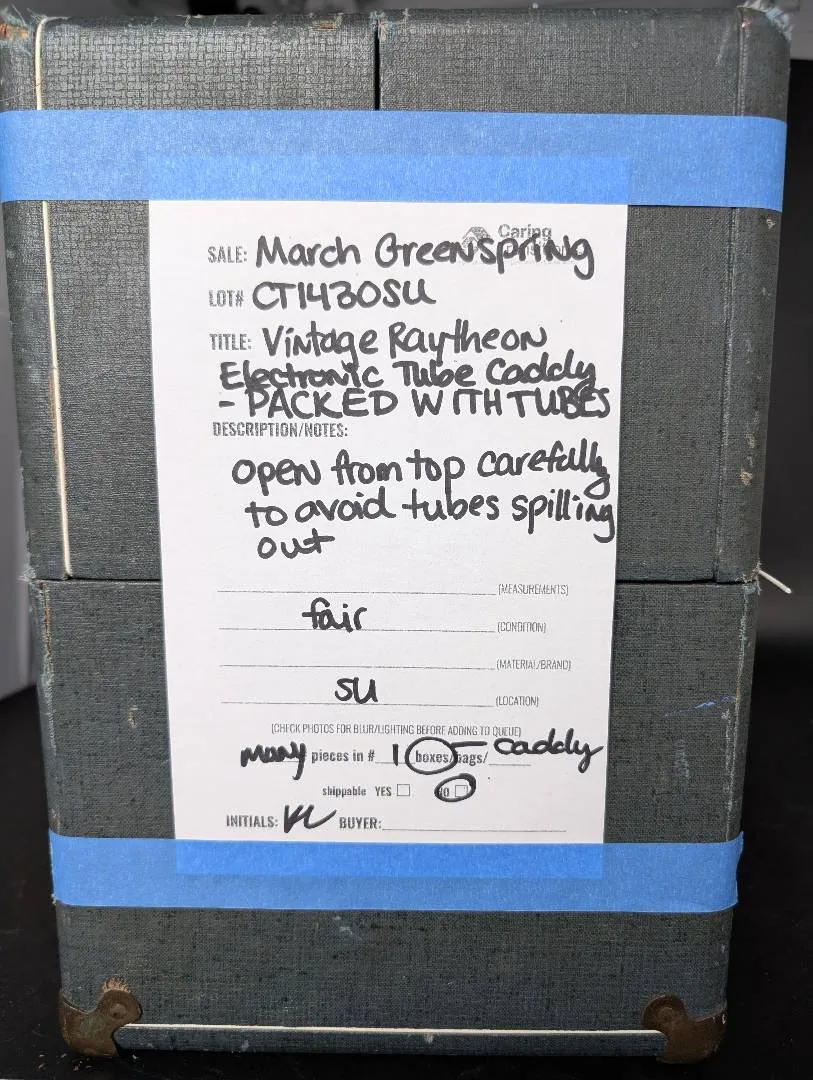 Caring
SALE: March Greenspring
LOT# CT1430SU
TITLE: Vintage Raytheon
Electronic Tube Caddy
- PACKED WITH TUBES
DESCRIPTION/NOTES:
open from top carefully
to avoid tubes spilling
out
(MEASUREMENTS)
fair (CONDITION)
(MATERIAL/BRAND)
SU (LOCATION)
(CHECK PHOTOS FOR BLUR/LIGHTING BEFORE ADDING TO QUEUE)
many pieces in # 1 boxes/bags/ caddy
shippable YES NO
INITIALS: BUYER: